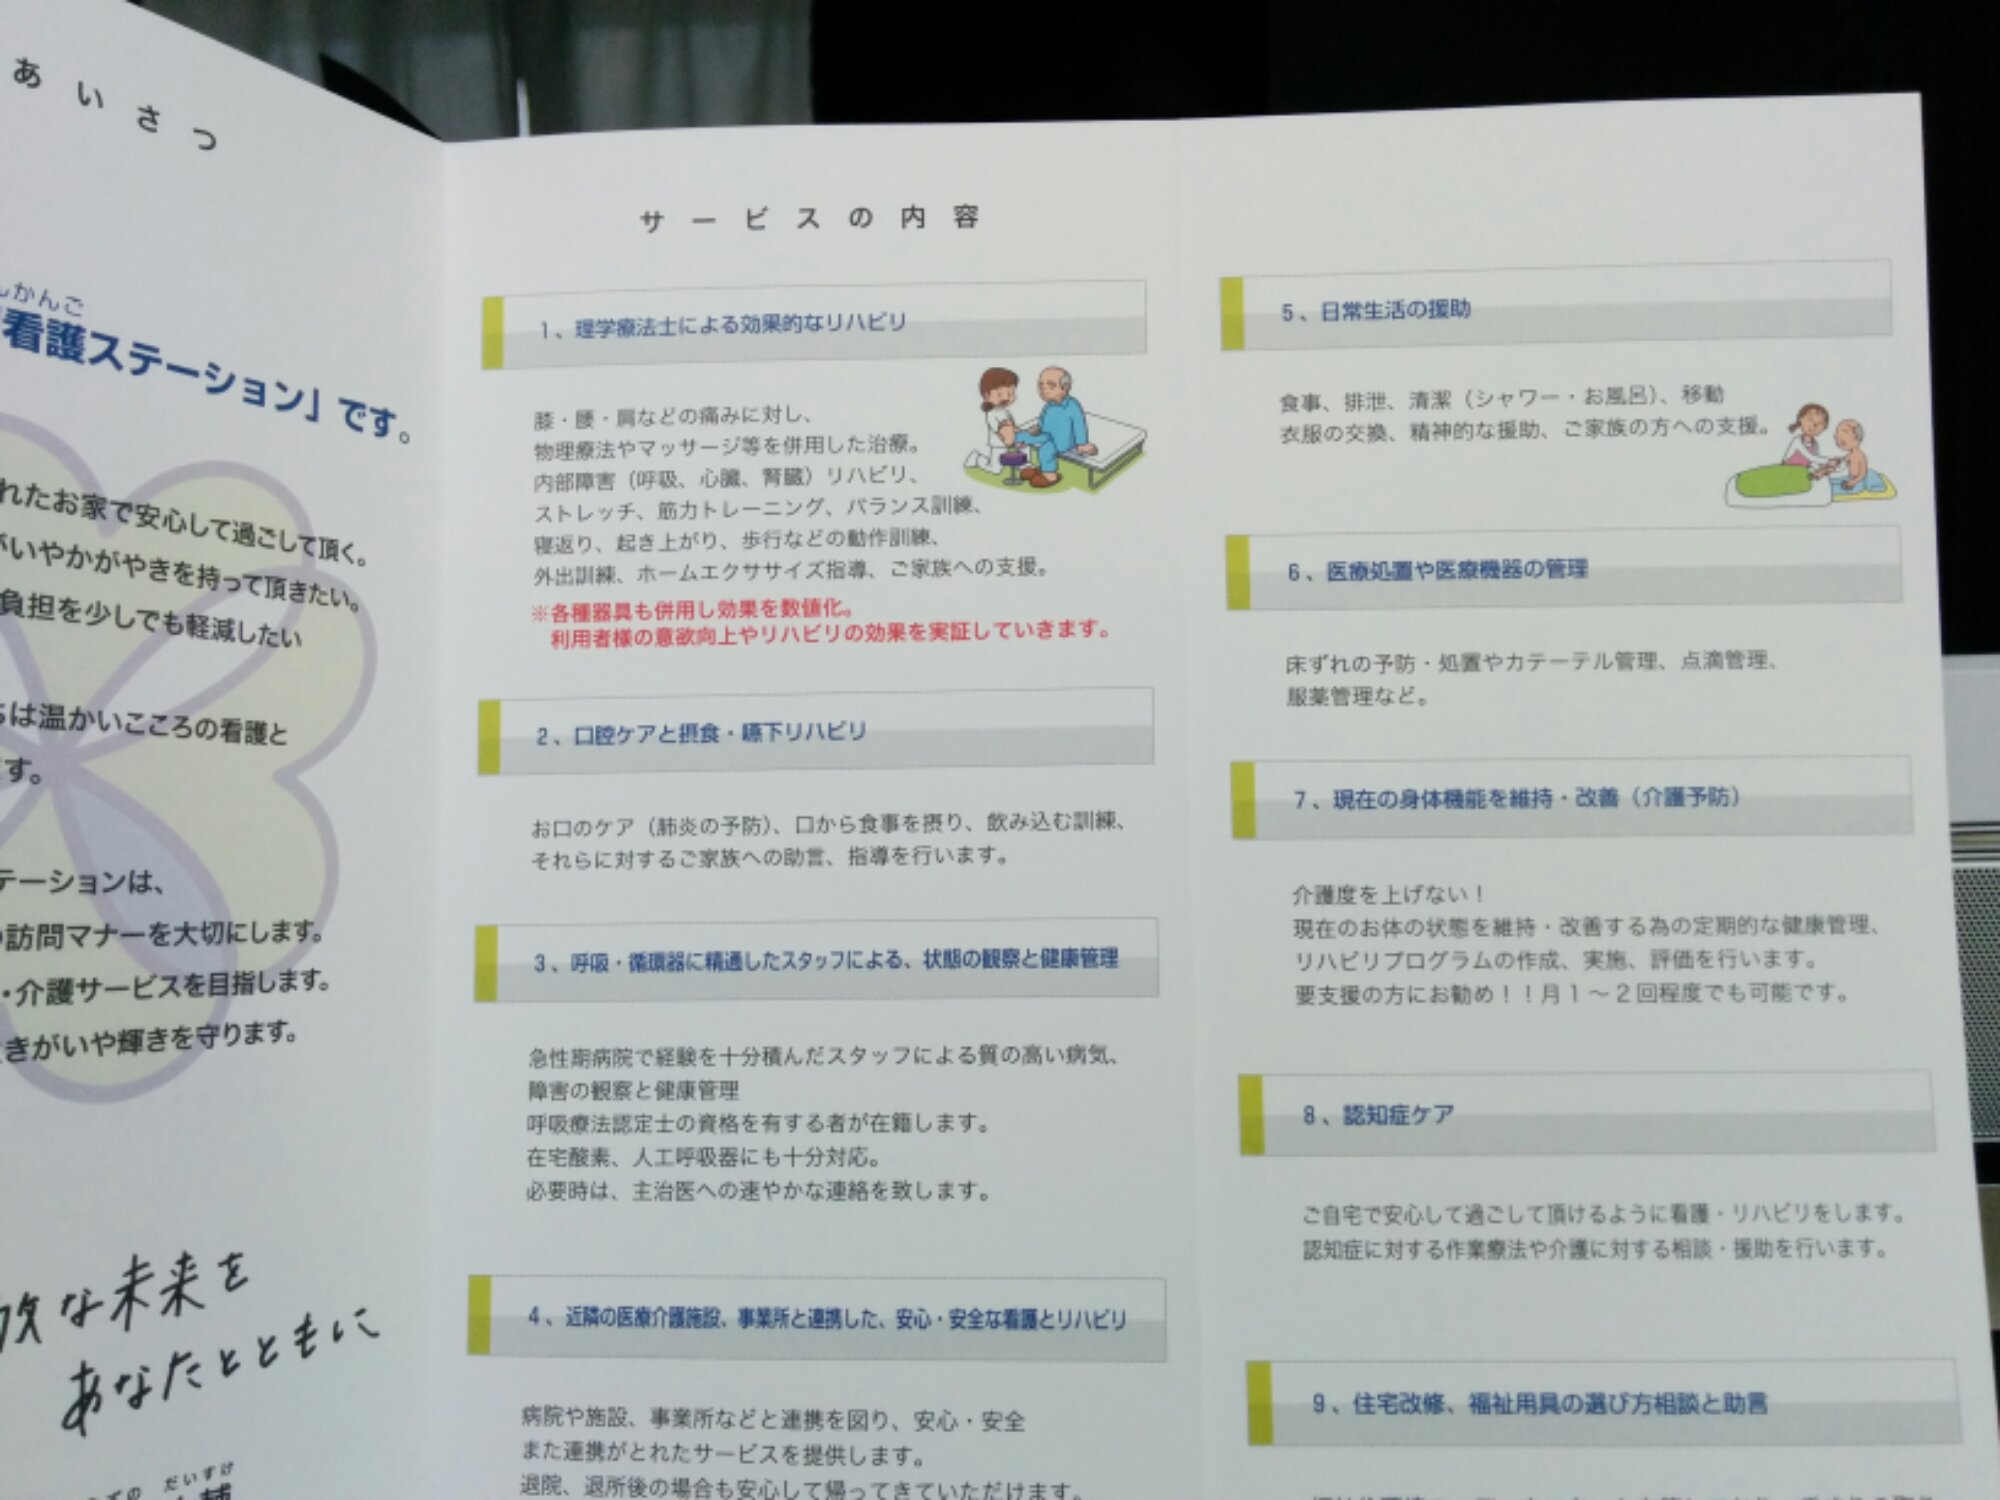 あいさつ
んかんご
看護ステーション」です。
れたお家で安心して過ごして頂く。
がいやかがやきを持って頂きたい。
負担を少しでも軽減したい
は温かいこころの看護と
す。
テーションは、
訪問マナーを大切にします。
・介護サービスを目指します。
きがいや輝きを守ります。
な未来を
あなたとともに
だいすけ
サービスの内容
1、理学療法士による効果的なリハビリ
膝・腰・肩などの痛みに対し、
物理療法やマッサージ等を併用した治療。
内部障害（呼吸、心臓、腎臓）リハビリ、
ストレッチ、筋力トレーニング、バランス訓練、
寝返り、起き上がり、歩行などの動作訓練、
外出訓練、ホームエクササイズ指導、ご家族への支援。
※各種器具も併用し効果を数値化。
利用者様の意欲向上やリハビリの効果を実証していきます。
2、口腔ケアと摂食・嚥下リハビリ
お口のケア（肺炎の予防）、口から食事を摂り、飲み込む訓練、
それらに対するご家族への助言、指導を行います。
3、呼吸・循環器に精通したスタッフによる、状態の観察と健康管理
急性期病院で経験を十分積んだスタッフによる質の高い病気、
障害の観察と健康管理
呼吸療法認定士の資格を有する者が在籍します。
在宅酸素、人工呼吸器にも十分対応。
必要時は、主治医への速やかな連絡を致します。
4、近隣の医療介護施設、事業所と連携した、安心・安全な看護とリハビリ
病院や施設、事業所などと連携を図り、安心・安全
また連携がとれたサービスを提供します。
退院、退所後の場合も安心して帰ってきていただけます。
5、日常生活の援助
食事、排泄、清潔（シャワー・お風呂）、移動
衣服の交換、精神的な援助、ご家族の方への支援。
6、医療処置や医療機器の管理
床ずれの予防・処置やカテーテル管理、点滴管理、
服薬管理など。
7、現在の身体機能を維持・改善（介護予防）
介護度を上げない！
現在のお体の状態を維持・改善する為の定期的な健康管理、
リハビリプログラムの作成、実施、評価を行います。
要支援の方にお勧め！！月１～２回程度でも可能です。
8、認知症ケア
ご自宅で安心して過ごして頂けるように看護・リハビリをします。
認知症に対する作業療法や介護に対する相談・援助を行います。
9、住宅改修、福祉用具の選び方相談と助言